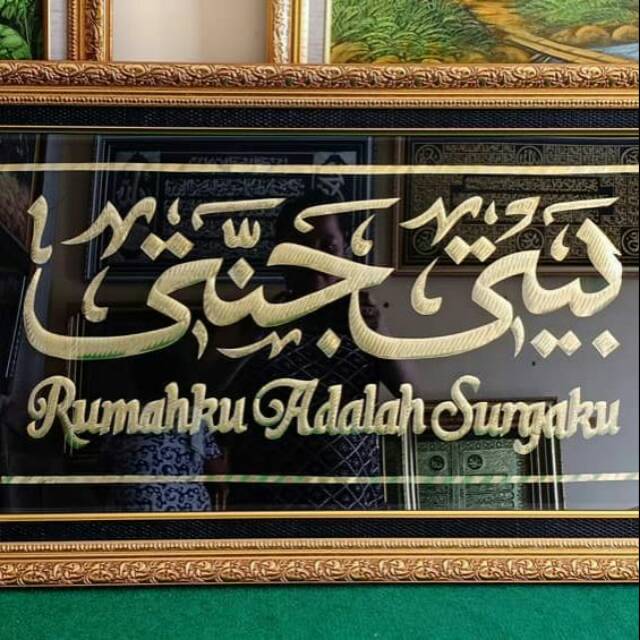 بيتي جنتي
Rumahku Adalah Surgaku